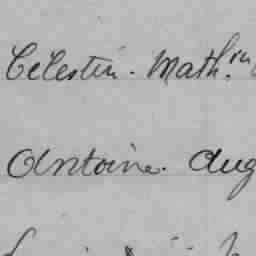 Celestin. Math.in
Antoine. Aug